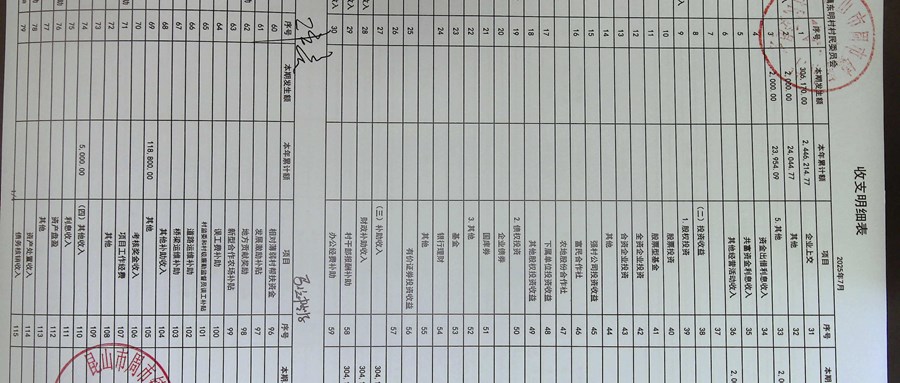 收支明细表
2025年7月
镇东明村村民委员会
序号 本期发生额 本年累计额 项目 序号 本期
1 306,170.00 2,446,214.77 企业上交 31
2 2,000.00 24,044.77 其他 32
3 2,000.00 23,954.09 5.其他 33 2,0
4 资金出借利息收入 34
5 共富资金利息收入 35
6 其他经营活动收入 36 2,0
7 37
8 (二)投资收益 38
9 1.股权投资 39
10 股票投资 40
11 股票型基金 41
12 全资企业投资 42
13 合资企业投资 43
14 其他 44
15 强村公司投资收益 45
16 富民合作社 46
17 农地股份合作社 47
18 下属单位投资收益 48
19 其他股权投资收益 49
20 2.债权投资 50
21 国库券 51
22 3.其他 52
23 基金 53
24 银行理财 54
其他 55
25 有价证券投资收益 56
26
27 (三)补助收入 57 304,
28 财政补助收入 304,
29 村干部报酬补助 58 304,
30 办公经费补助 59
序号 本期发生额 本年累计额 项目 序号 本期
60 相对薄弱村帮扶资金 96
61 发展激励补贴 97
62 地方贡献奖励 98
63 新型合作农场补贴 99
64 误工费补助 100
65 村监委和村级廉勤监督员误工补贴 101
66 道路运维补助 102
67 桥梁运维补助 103
68 其他补助收入 104
69 118,800.00 其他 105
70 考核奖金收入 106
71 项目工作经费 107
72 其他 108
73 109
74 5,000.00 (四)其他收入 110
75 利息收入 111
76 资产盘盈 112
77 其他 113
78 资产处置收入 114
79 债务核销收入 115
昆山市周市镇
山市周市